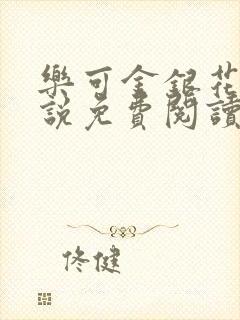 樂可金銀花
說免費閱讀
佟健